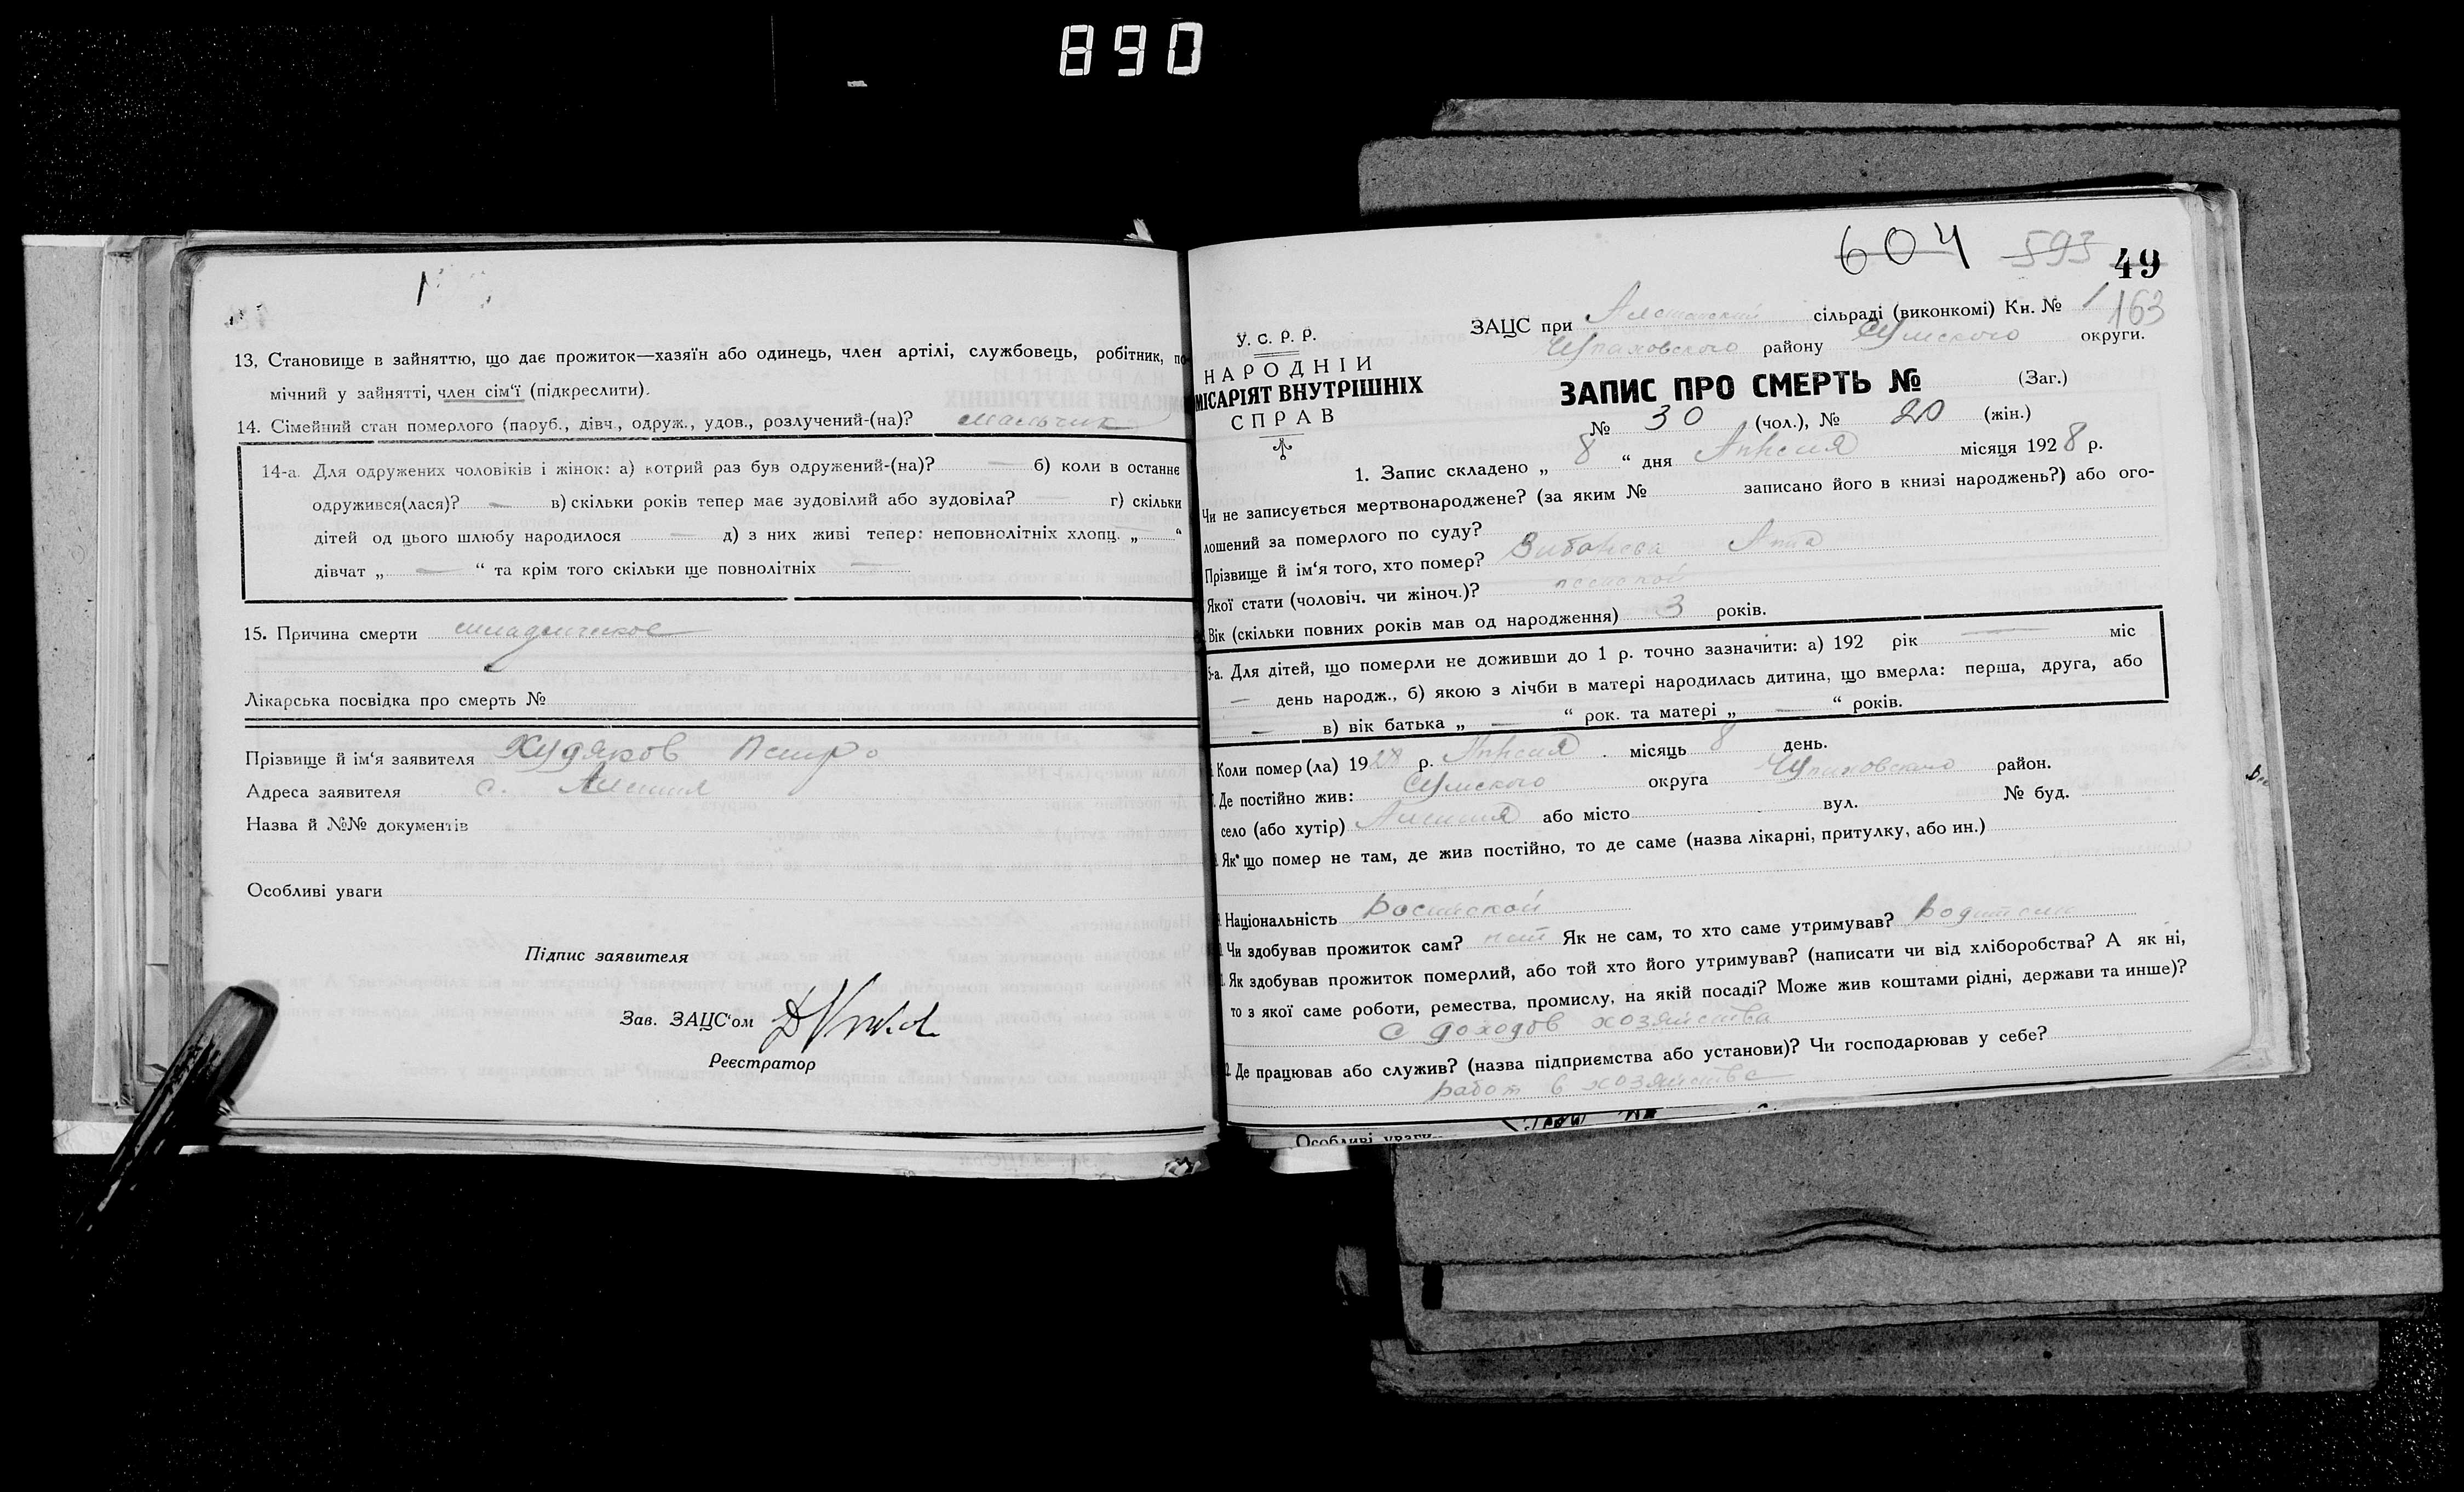 890
13, Становище в зайняттю, що дає прожиток—хазяїн або одинець, член артілі, службовець, робітник, по-
мічний у зайнятті, член сім'ї (підкреслити).
14. Сімейний стан померлого (паруб., дівч., одруж., удов., розлучений-(на)? мальчик
14-а. Для одружених чоловіків і жінок: а) котрий раз був одружений-(на)? — б) коли в останнє
одружився(лася)? — в) скільки років тепер має зудовілий або зудовіла? г) скільки
дітей од цього шлюбу народилося — д) з них живі тепер: неповнолітніх хлопц. „ “
дівчат „ — “ та крім того скільки ще повнолітніх —
15. Причина смерти младенческое
Лікарська посвідка про смерть №
Прізвище й ім'я заявителя Худяков Петро
Адреса заявителя с.
Назва й №№ документів
Особливі уваги
Підпис заявителя
Зав. ЗАЦС'ом
Реєстратор
604 593 49
У. С. Р. Р.
НАРОДНІЙ
МІСАРІЯТ ВНУТРІШНІХ
СПРАВ
ЗАЦС при сільраді (виконкомі) Кн. № 1 163
району Сумского округи.
ЗАПИС ПРО СМЕРТЬ № (Заг.)
№ 30 (чол.), № 20 (жін.)
1. Запис складено „ 8 “ дня Апреля місяця 1928 р.
Чи не записується мертвонароджене? (за яким № записано його в книзі народжень?) або ого-
лошений за померлого по суду?
Прізвище й ім'я того, хто помер? Анна
Якої стати (чоловіч. чи жіноч.)?
Вік (скільки повних років мав од народження) 3 років.
5-а. Для дітей, що померли не доживши до 1 р. точно зазначити: а) 192 рік — міс
— день народж., б) якою з лічби в матері народилась дитина, що вмерла: перша, друга, або
— в) вік батька „ — “ рок. та матері „ — “ років.
Коли помер(ла) 1928 р. Апреля місяць 8 день.
Де постійно жив: Сумского округа район.
село (або хутір) або місто вул. № буд.
Як що помер не там, де жив постійно, то де саме (назва лікарні, притулку, або ин.)
Національність
Чи здобував прожиток сам? нет Як не сам, то хто саме утримував? родители
Як здобував прожиток померлий, або той хто його утримував? (написати чи від хліборобства? А як ні,
то з якої саме роботи, ремества, промислу, на якій посаді? Може жив коштами рідні, держави та инше)?
с доходов хозяйства
2. Де працював або служив? (назва підприємства або установи)? Чи господарював у себе?
работ в хозяйстве
Особливі уваги